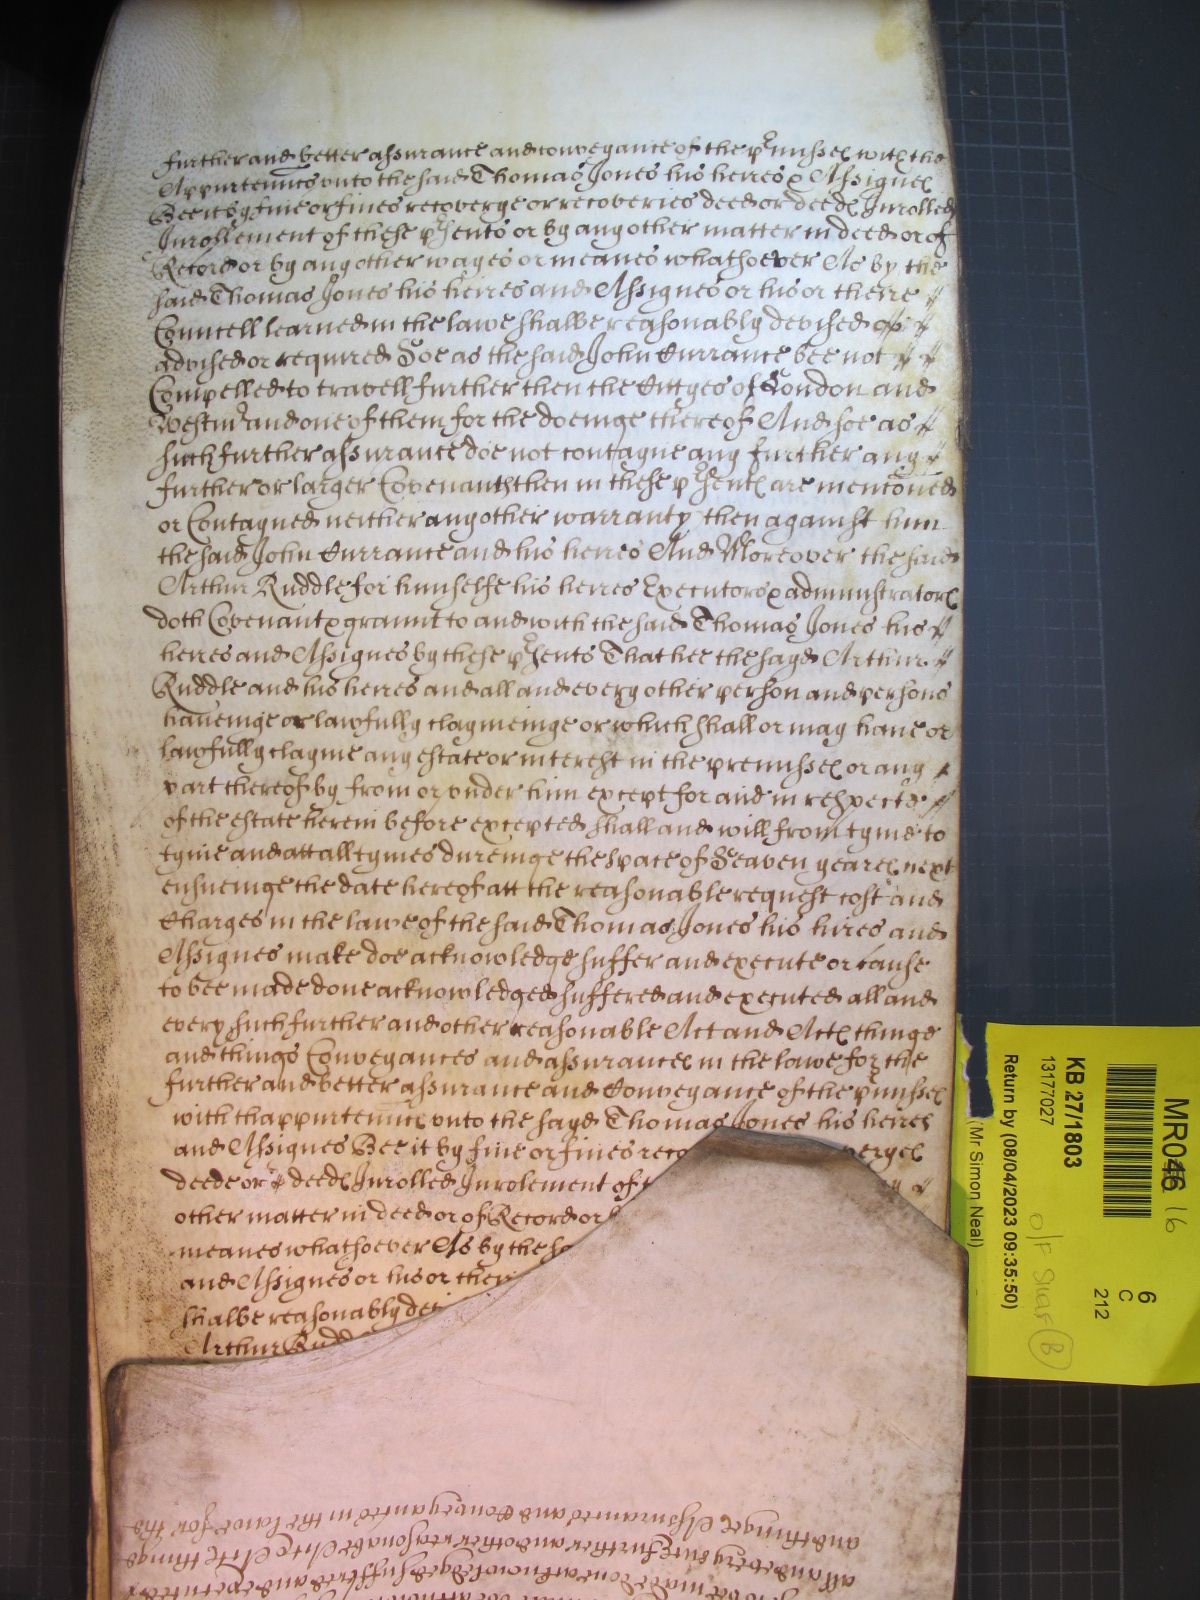 further and better assurance and conveyance of the p'misses with the
Appurtenncs unto the said Thomas Jones his heires & Assignes
Bee it by fine or fines recoverye or recoveries deed or deedes Inrolled
Inrollement of these p'sents or by any other matter in deed or of
Record or by any other wayes or meanes whatsoever As by the
said Thomas Jones his heires and Assignes or his or theire
Councell learned in the lawe shalbe reasonably devised
advised or required Soe as the said John Currance bee not
Compelled to travell further then the Cittyes of London and
Westmr and one of them for the doeinge thereof And soe as
such further assurance doe not contayne any further any
further or larger Covenants then in these p'sentes are mentoned
or Contayned neither any other warranty then against him
the said John Currance and his heires And Moreover the said
Arthur Ruddle for himselfe his heires Executors & administrators
doth Covenant & graunt to and with the said Thomas Jones his
heires and Assignes by these p'sents That hee the sayd Arthur
Ruddle and his heires and all and every other person and persons
haveinge or lawfully claymeinge or which shall or may have or
lawfully clayme any estate or interest in the premisses or any
part thereof by from or under him except for and in respecte
of the estate herein before excepted shall and will from tyme to
tyme and att all tymes dureinge the space of Seaven yeares next
ensueinge the date hereof att the reasonable request cost and
Charges in the lawe of the said Thomas Jones his hires and
Assignes make doe acknowledge suffer and execute or cause
to bee made done acknowledged suffered and executed all and
every such further and other reasonable Act and Actes thinge
and things Conveyances and assurances in the lawe for the
further and better assurance and Conveyance of the p'misses
with thappurtennces unto the sayd Thomas Jones his heires
and Assignes Bee it by fine or fines reco veryes
deede or deedes Inrolled Inrolement of t
other matter in deed or of Record or b
meanes whatsoever As by the sa
and Assignes or his or their
shalbe reasonably dev
Arthur Rudd
and thinges Assurances and Conveyances in the lawe for the
all and every such further and other reasonable Acte Actes things
to be made done acknowledged suffered and executed
MR046 16
6
C
212
KB 27/1803
13177027
Return by (08/04/2023 09:35:50)
(Mr Simon Neal)
O/F Shelf B